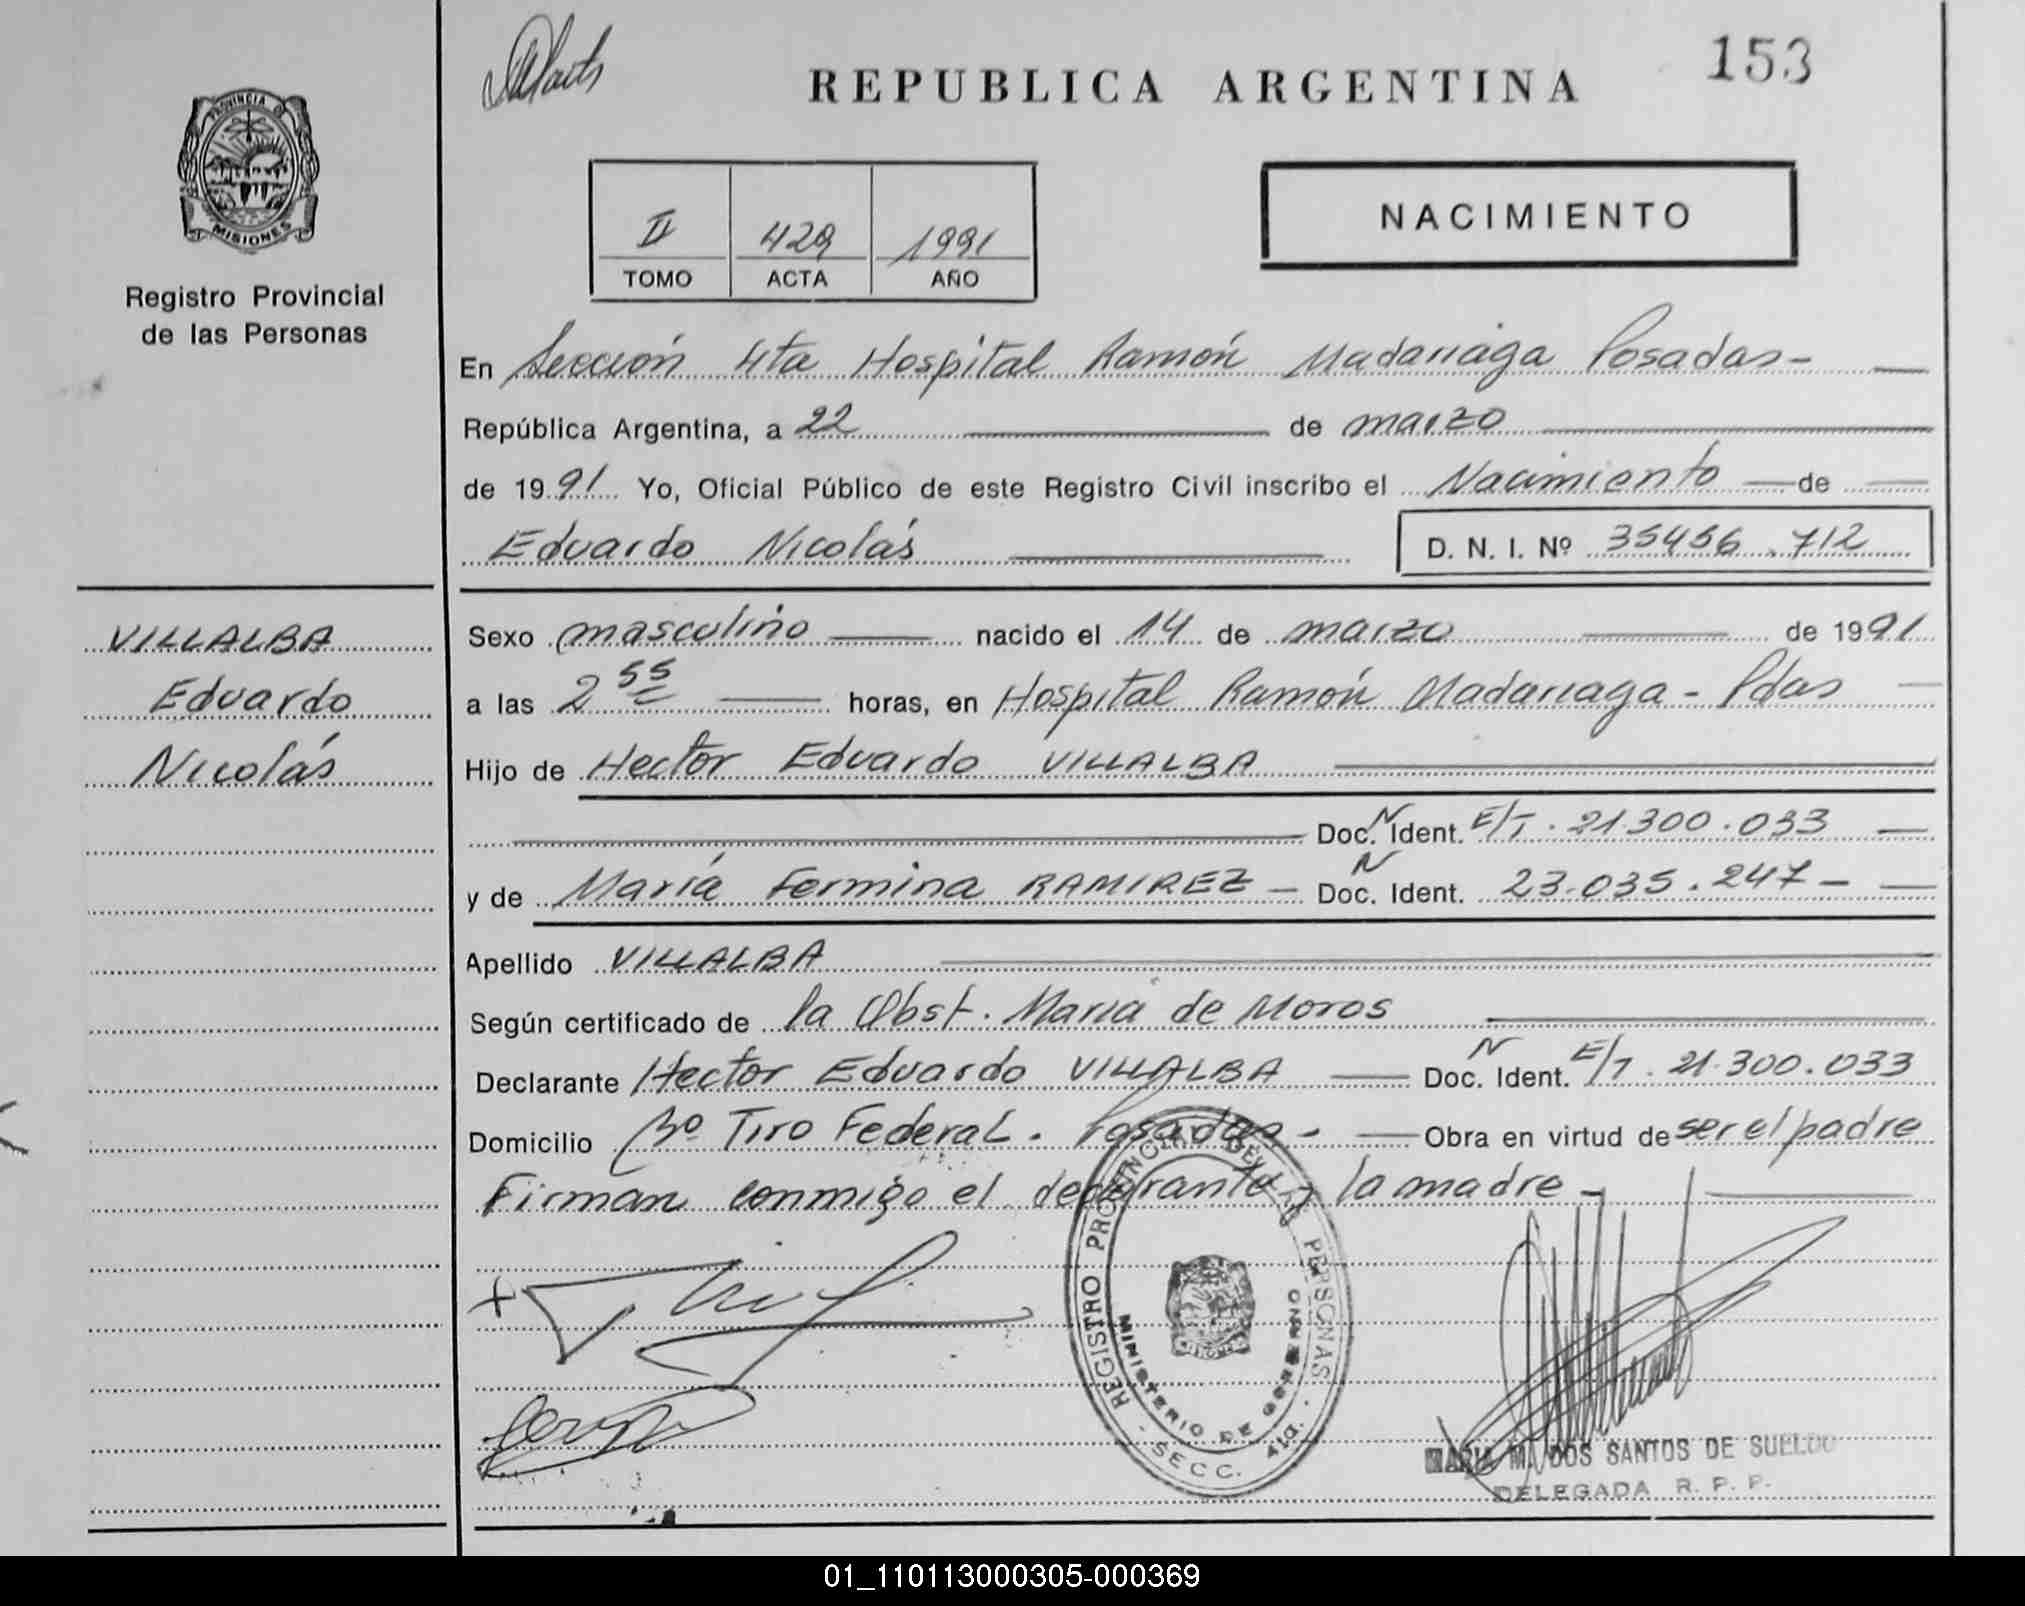 REPUBLICA ARGENTINA
153
PROVINCIA DE
MISIONES
Registro Provincial
de las Personas
II 429 1991
TOMO ACTA AÑO
NACIMIENTO
En Sección 4ta Hospital Ramón Madariaga Posadas -
República Argentina, a 22 de marzo
de 1991 Yo, Oficial Público de este Registro Civil inscribo el Nacimiento de
Eduardo Nicolás D. N. I. Nº 35456.712
VILLALBA
Eduardo
Nicolás
Sexo masculino nacido el 14 de marzo de 1991
a las 2 55 horas, en Hospital Ramón Madariaga - Pdas
Hijo de Hector Eduardo VILLALBA
Doc. N Ident. E/T. 21.300.033
y de María Fermina RAMIREZ - Doc. N Ident. 23.035.247 -
Apellido VILLALBA
Según certificado de la Obst. María de Moros
Declarante Hector Eduardo VILLALBA Doc. N Ident. E/T. 21.300.033
Domicilio Bº Tiro Federal. Posadas - Obra en virtud de ser el padre
Firman conmigo el declarante y la madre -
REGISTRO PROVINCIAL DE LAS PERSONAS
MINISTERIO DE GOBIERNO
SECC. 4ta.
MARIA M. DOS SANTOS DE SUELDO
DELEGADA R. P. P.
01_110113000305-000369